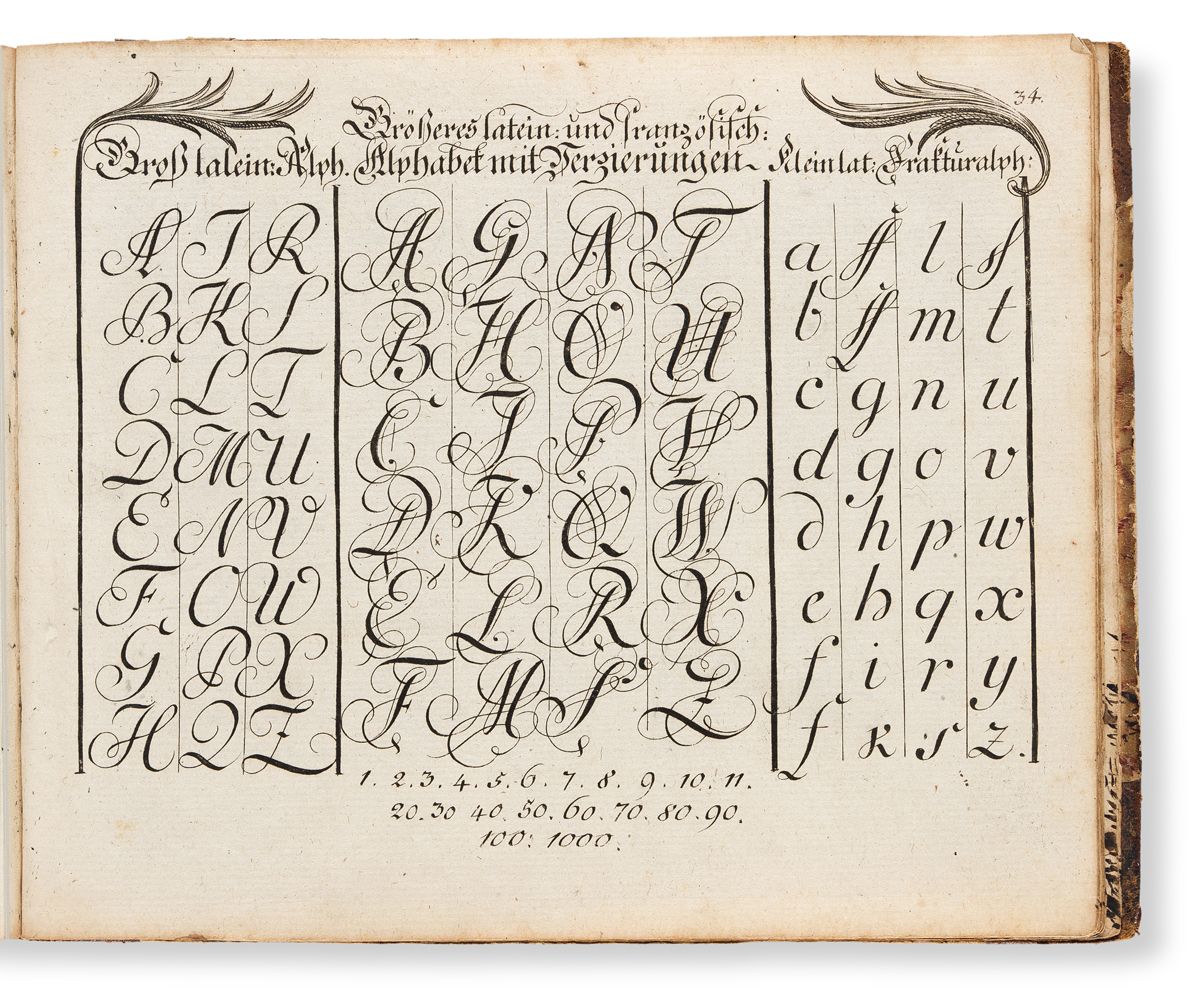 34.
Größeres latein: und französisch:
Groß latein: Alph. Alphabet mit Verzierungen Klein lat: Frakturalph:
A I R
B K S
C L T
D M U
E N V
F O W
G P X
H Q Z
A G N T
B H O U
C I P V
D K Q W
E L R X
F M S Z
a ff l ſ
b ff m t
c g n u
d g o v
d h p w
e h q x
f i r y
f k s z.
1. 2. 3. 4. 5. 6. 7. 8. 9. 10. 11.
20. 30 40. 50. 60. 70. 80. 90.
100. 1000.